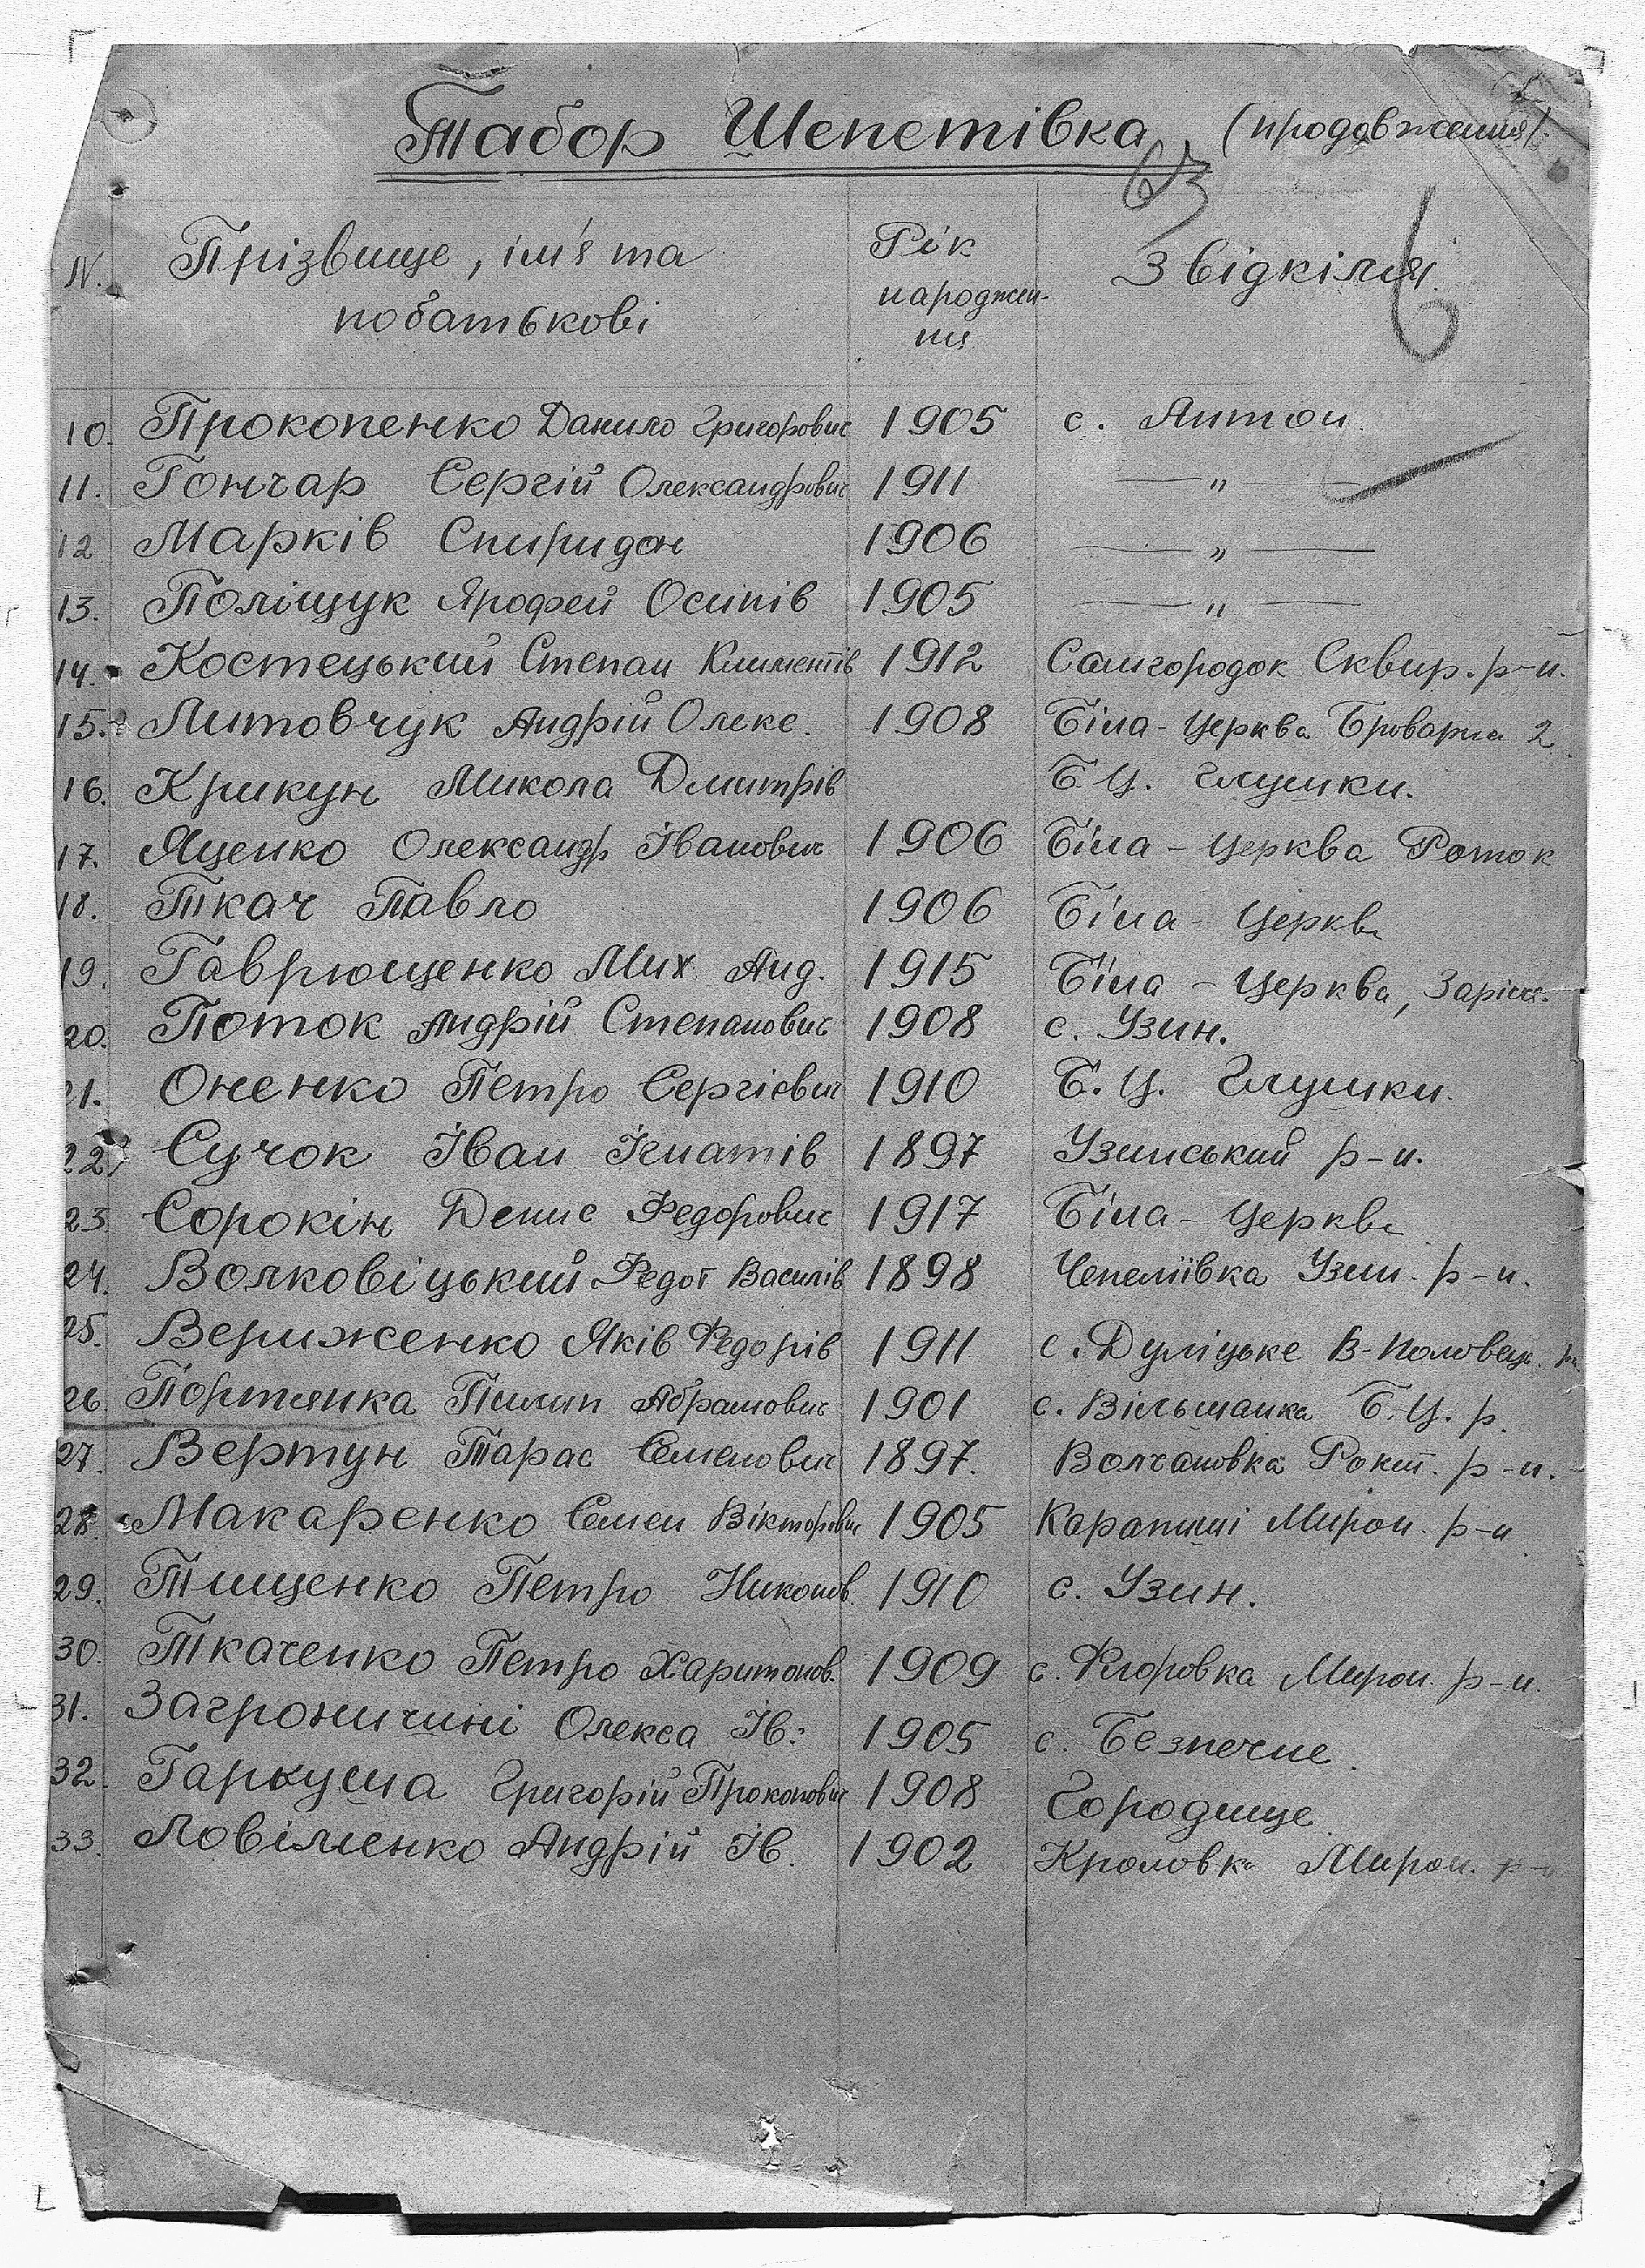 Табор Шепетівка (продовження).
63
6
N. Прізвище, ім'я та побатькові Рік народження Звідкіля
10. Прокопенко Данило Григорович 1905 с. Антон.
11. Гончар Сергій Олександрович 1911 — " —
12 Марків Спиридон 1906 — " —
13. Поліщук Ярофей Осипів 1905 — " —
14. Костецький Степан Климентів 1912 Самгородок Сквир. р-н.
15. Литовчук Андрій Олекс. 1908 Біла-Церква Броварна 2
16. Крикун Микола Дмитрів Б.Ц. Глушки.
17. Яценко Олександр Іванович 1906 Біла-Церква Роток
18. Ткач Павло 1906 Біла-Церква
19. Гаврющенко Мих. Анд. 1915 Біла-Церква, Заріч.
20. Поток Андрій Степанович 1908 с. Узин.
21. Оненко Петро Сергієвич 1910 Б.Ц. Глушки.
22. Сучок Іван Ігнатів 1897 Узинський р-н.
23. Сорокін Денис Федорович 1917 Біла-Церква
24. Волковіцький Федот Василів 1898 Чепеліївка Узин. р-н.
25. Вериженко Яків Федорів 1911 с. Дуліцьке В-Половец.
26. Портянка Пилип Абрамович 1901 с. Вільшанка Б.Ц. р.
27. Вертун Тарас Семенович 1897. Волчановка Рокит. р-н.
28. Макаренко Семен Вікторович 1905 Карапиші Мирон. р-н
29. Тищенко Петро Никонов. 1910 с. Узин.
30. Ткаченко Петро Харитонов. 1909 с. Миron. р-н.
31. Олекса Ів. 1905 с. Безпечне.
32. Гаркуша Григорій Прокопович 1908 Городище.
33. Ловіменко Андрій Ів. 1902 Мирон. р-н